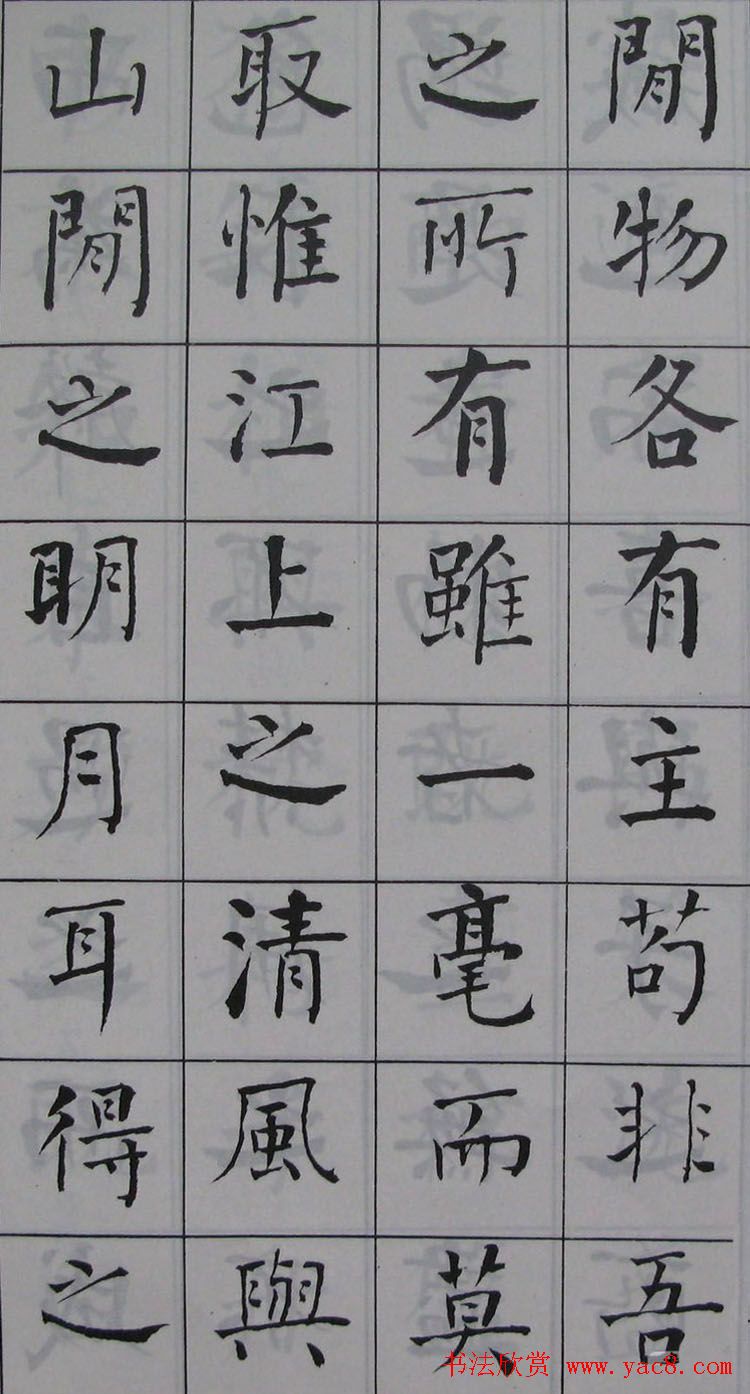 閒物各有主苟非吾
之所有雖一毫而莫
取惟江上之清風與
山閒之明月耳得之
书法欣赏 www.yac8.com